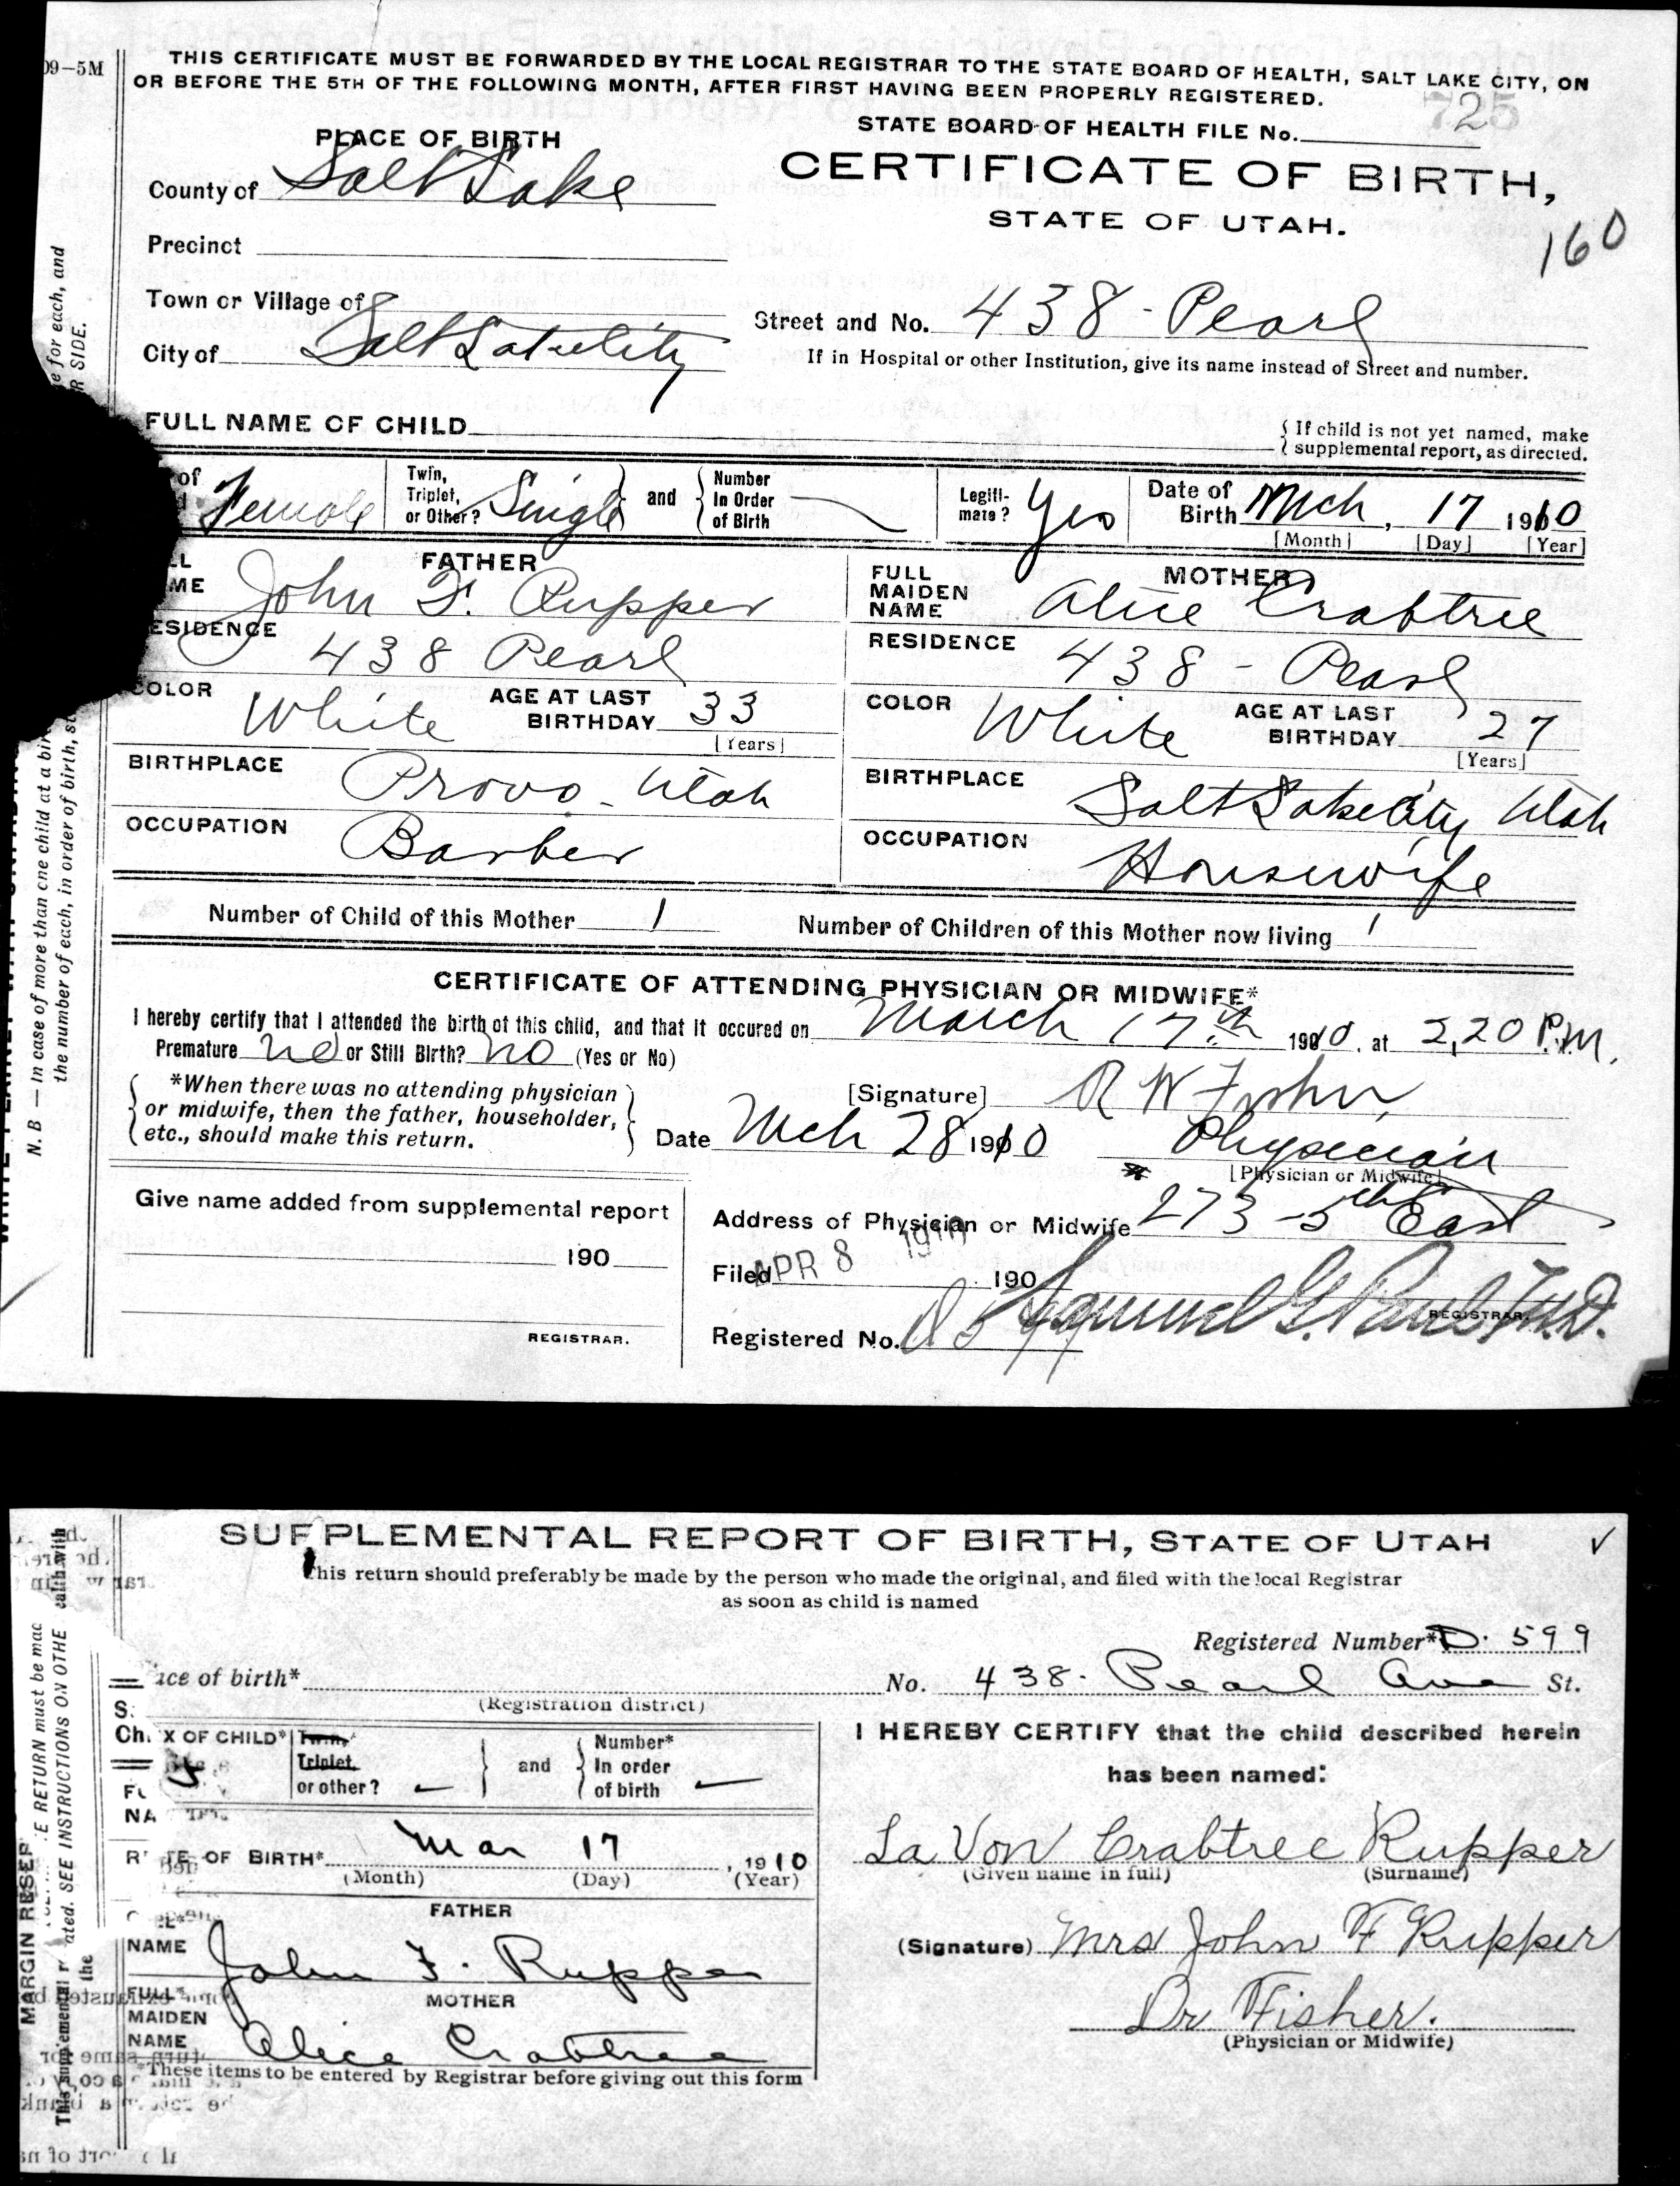 09-5M
THIS CERTIFICATE MUST BE FORWARDED BY THE LOCAL REGISTRAR TO THE STATE BOARD OF HEALTH, SALT LAKE CITY, ON
OR BEFORE THE 5TH OF THE FOLLOWING MONTH, AFTER FIRST HAVING BEEN PROPERLY REGISTERED.
STATE BOARD OF HEALTH FILE No. 725
PLACE OF BIRTH
CERTIFICATE OF BIRTH,
STATE OF UTAH.
160
County of Salt Lake
Precinct
Town or Village of
City of Salt Lake City
Street and No. 438 - Pearl
If in Hospital or other Institution, give its name instead of Street and number.
FULL NAME OF CHILD
If child is not yet named, make
supplemental report, as directed.
of Female
Twin, Triplet, or Other? Single and Number In Order of Birth
Legiti-mate? Yes
Date of Birth Mch, 17 1910
[Month] [Day] [Year]
FATHER
John F. Rupper
RESIDENCE
438 Pearl
COLOR White AGE AT LAST BIRTHDAY 33
[Years]
BIRTHPLACE Provo - Utah
OCCUPATION Barber
MOTHER
FULL MAIDEN NAME Alice Crabtree
RESIDENCE 438 - Pearl
COLOR White AGE AT LAST BIRTHDAY 27
[Years]
BIRTHPLACE Salt Lake City Utah
OCCUPATION Housewife
Number of Child of this Mother 1 Number of Children of this Mother now living 1
CERTIFICATE OF ATTENDING PHYSICIAN OR MIDWIFE*
I hereby certify that I attended the birth of this child, and that it occured on March 17th 1910, at 2,20 P.M.
Premature no or Still Birth? no (Yes or No)
*When there was no attending physician
or midwife, then the father, householder,
etc., should make this return.
[Signature] R W Fisher,
Date Mch 28 1910 Physician
[Physician or Midwife]
Give name added from supplemental report
190
REGISTRAR.
Address of Physician or Midwife 273 - 5th East
Filed APR 8 1910 190
Samuel G. Paul M.D.
REGISTRAR
Registered No.
N. B — In case of more than one child at a birth
the number of each, in order of birth, st
e for each, and
R SIDE.
SUPPLEMENTAL REPORT OF BIRTH, STATE OF UTAH
✓
This return should preferably be made by the person who made the original, and filed with the local Registrar
as soon as child is named
Registered Number* D. 599
ace of birth*
(Registration district)
No. 438. Pearl Ave St.
X OF CHILD*
Twin, Triplet, or other? — and Number* In order of birth —
TE OF BIRTH* Mar 17, 1910
(Month) (Day) (Year)
FATHER
NAME John F. Rupper
MOTHER
FULL* MAIDEN NAME Alice Crabtree
*These items to be entered by Registrar before giving out this form
I HEREBY CERTIFY that the child described herein
has been named:
La Von Crabtree Rupper
(Given name in full) (Surname)
(Signature) Mrs John F Rupper
Dr Fisher.
(Physician or Midwife)
MARGIN RESER
E RETURN must be mac
ated. SEE INSTRUCTIONS ON OTHE